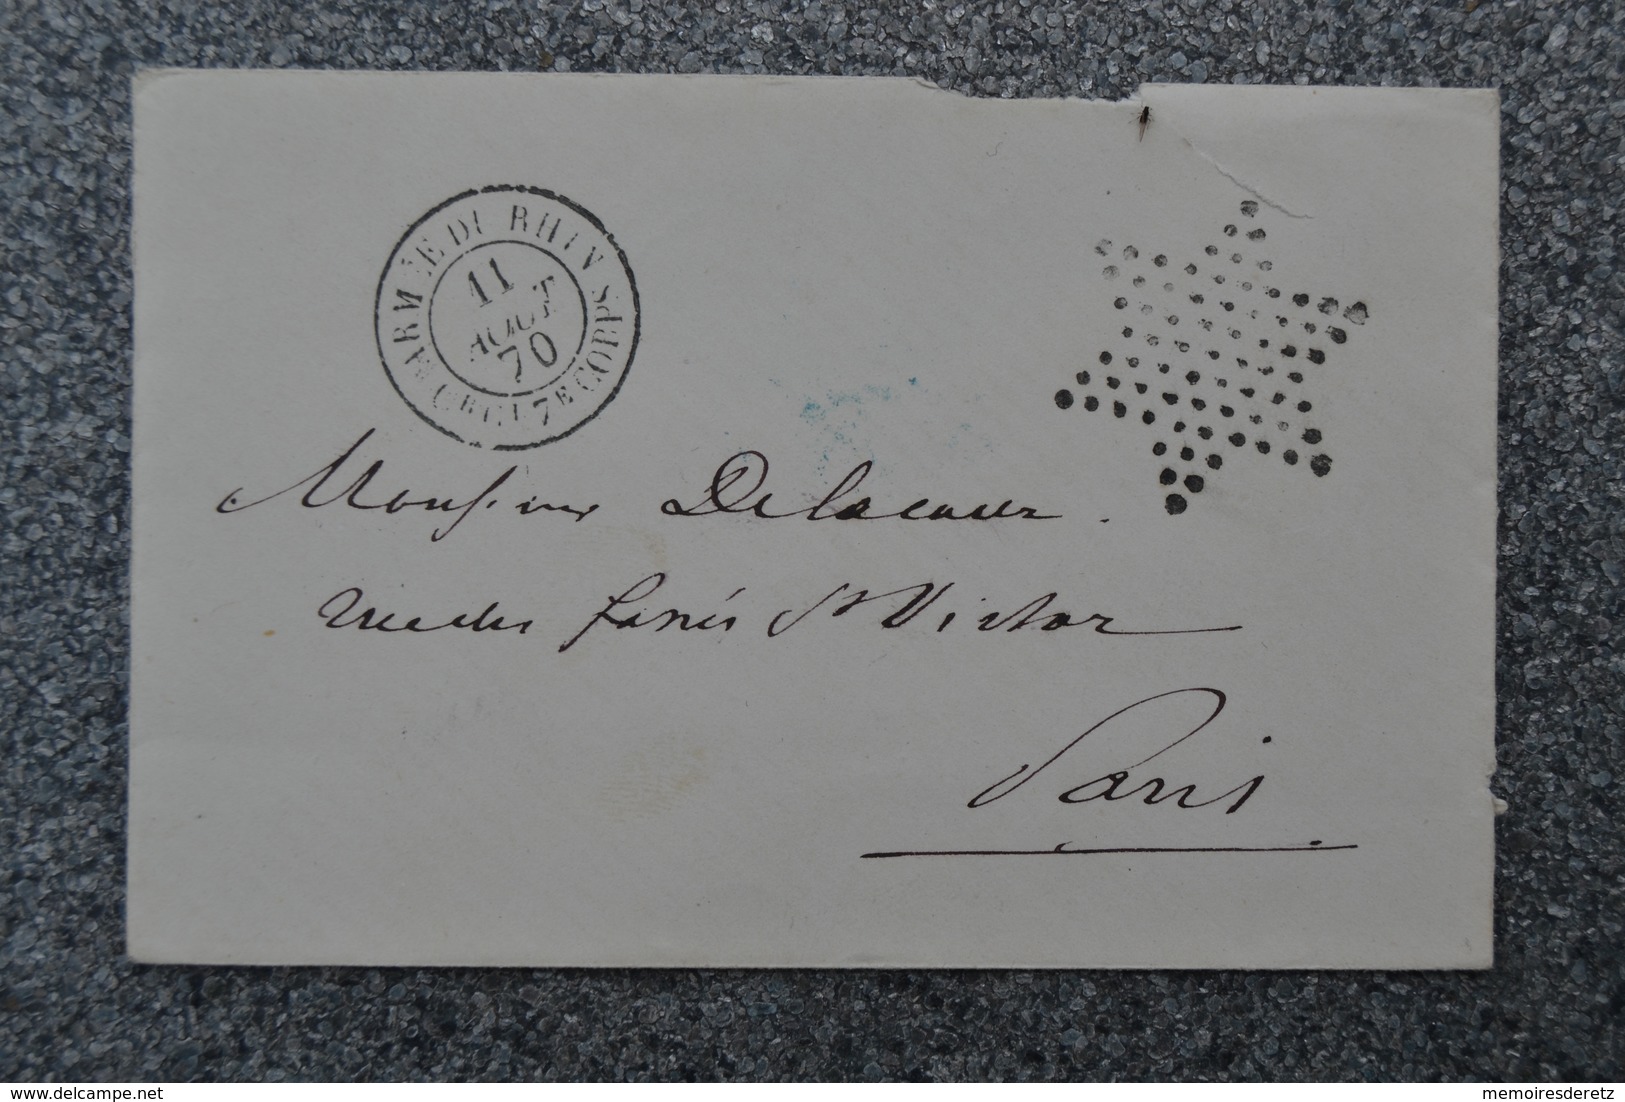 ARMÉE DU RHIN
7E CORPS
11
AOUT
70
Monsieur Delacour
rue des fossés St Victor
Paris
www.delcampe.net
memoiresderetz